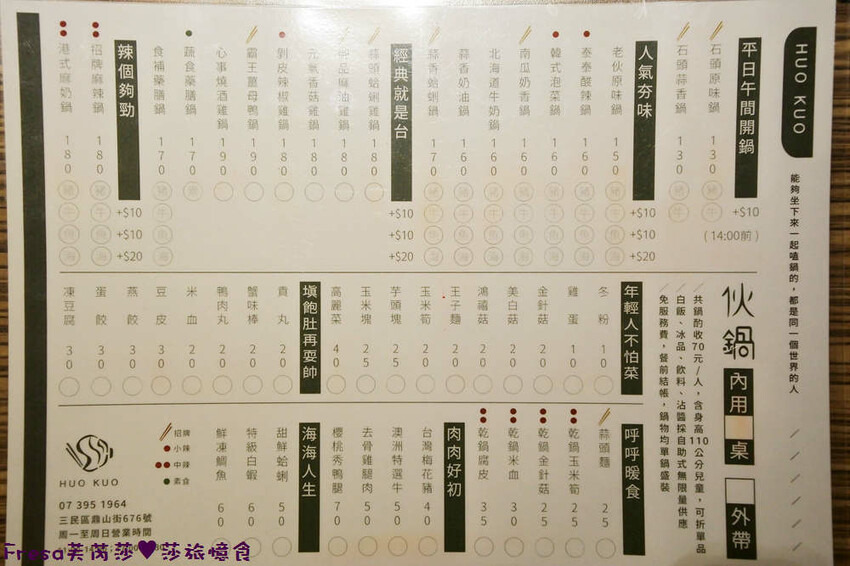 HUO KUO
能夠坐下來一起嗑鍋的，都是同一個世界的人
伙鍋 內用 桌 外帶
共鍋酌收70元/人，含身高110公分兒童，可折單品
白飯、冰品、飲料、沾醬採自助式無限量供應
免服務費，餐前結帳，鍋物均單鍋盛裝
平日午間開鍋 +$10 (14:00前)
石頭原味鍋 130 豬 牛
石頭蒜香鍋 130 豬 牛
人氣夯味 +$10 +$10 +$20
老伙原味鍋 150 豬 牛 魚 海
泰泰酸辣鍋 160 豬 牛 魚 海
韓式泡菜鍋 160 豬 牛 魚 海
南瓜奶香鍋 160 豬 牛 魚 海
北海道牛奶鍋 160 豬 牛 魚 海
蒜香奶油鍋 170 豬 牛 魚 海
蒜香蛤蜊鍋 170 豬 牛 魚 海
經典就是台 +$10 +$10 +$20
蒜頭蛤蜊雞鍋 180
麻油雞鍋 180
元氣香菇雞鍋 180
剝皮辣椒雞鍋 180
霸王薑母鴨鍋 190
心事燒酒雞鍋 190
蔬食藥膳鍋 170
食補藥膳鍋 170 豬 牛 魚 海
辣個夠勁 +$10 +$10 +$20
招牌麻辣鍋 180 豬 牛 魚 海
港式麻奶鍋 180 豬 牛 魚 海
年輕人不怕菜
冬粉 10
雞蛋 10
金針菇 20
美白菇 20
鴻禧菇 20
王子麵 20
玉米筍 20
芋頭塊 25
玉米塊 25
高麗菜 40
填飽肚再耍帥
貢丸 20
蟹味棒 20
鴨肉丸 20
米血 20
豆皮 30
燕餃 30
蛋餃 30
凍豆腐 30
呼呼暖食
蒜頭麵 25
乾鍋玉米筍 25
乾鍋金針菇 25
乾鍋米血 30
乾鍋腐皮 35
肉肉好初
台灣梅花豬 40
澳洲特選牛 50
去骨雞腿肉 50
櫻桃秀鴨腿 70
海海人生
甜鮮蛤蜊 50
特級白蝦 60
鮮凍鯛魚 60
招牌
小辣
中辣
素食
HUO KUO
07 395 1964
三民區鼎山街676號
周一至周日營業時間
Fresa芙芮莎♥莎旅憶食